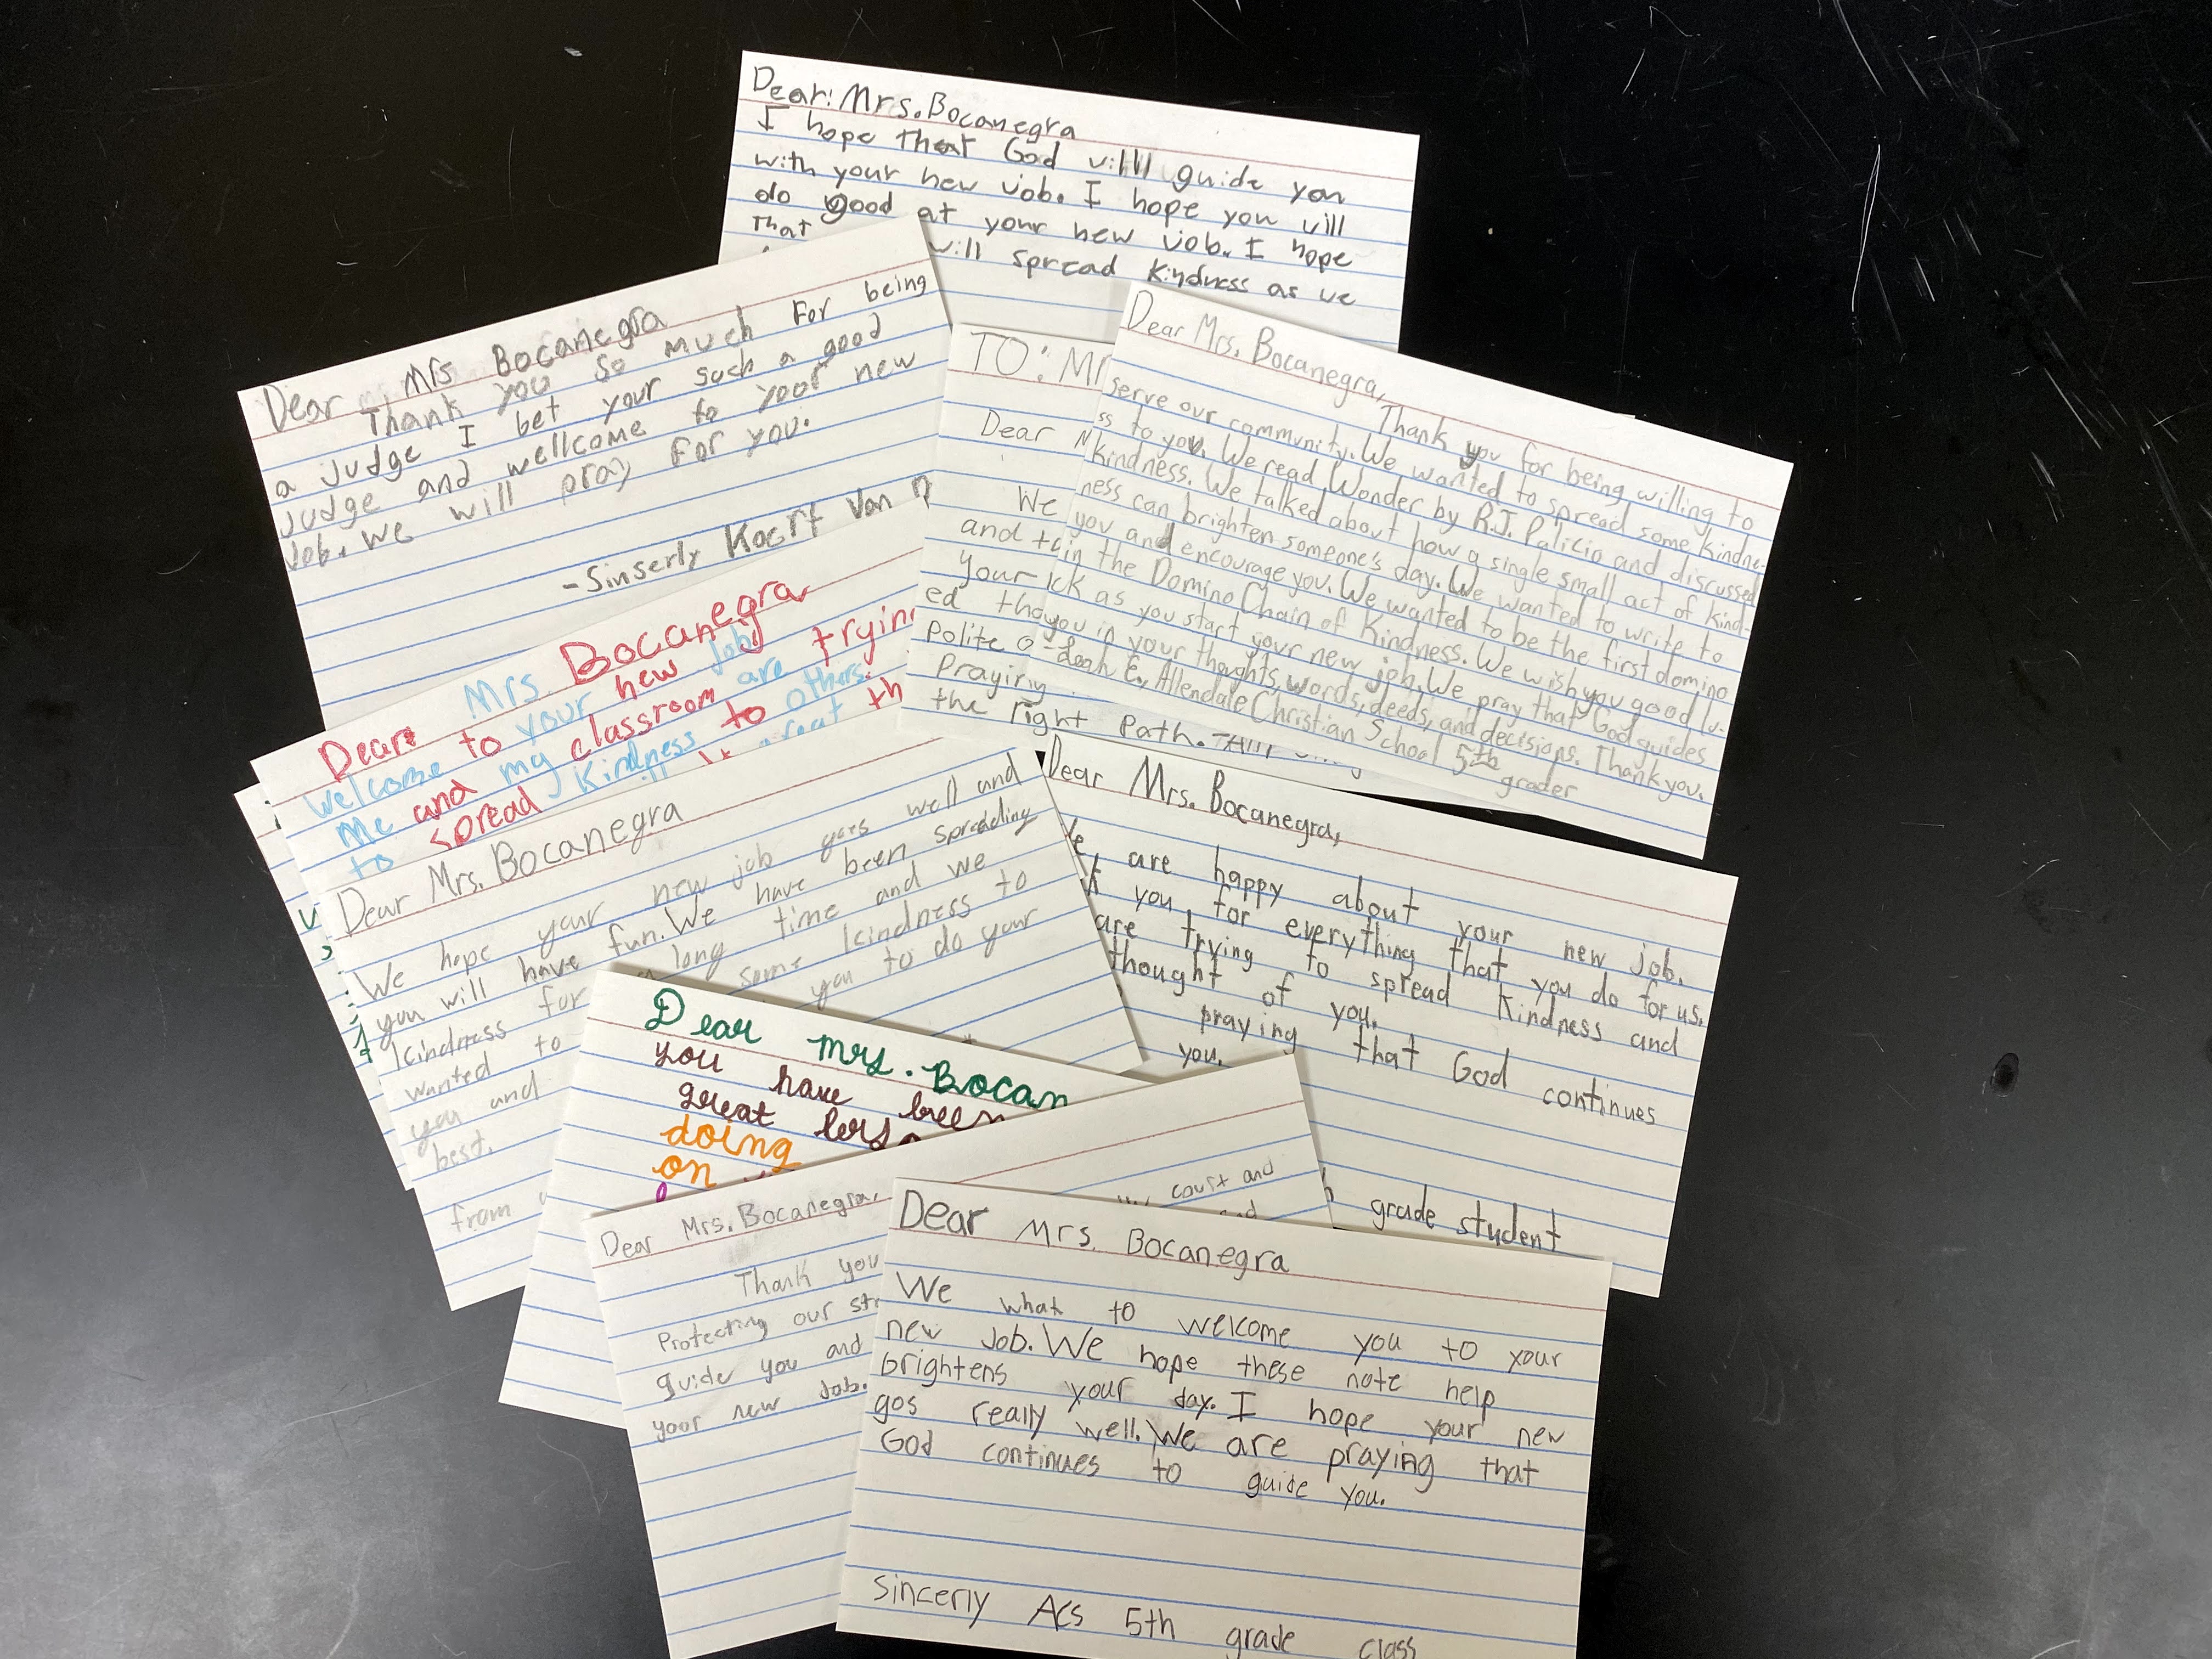 Dear: Mrs. Bocanegra
I hope that God vill guide you
with your new job. I hope you vill
do good at your new job. I hope
That
will spread kindness as we
Dear Mrs Bocanegra
Thank you so much For being
a judge I bet your such a good
judge and wellcome to your new
Job. We will pray For you.
-Sinserly Koert Van
TO: Mr
Dear
We
and
your
ed
Polite
Praying
the right Path.
Dear Mrs. Bocanegra,
Thank you for being willing to
serve our community. We wanted to spread some kindne-
ss to you. We read Wonder by R.J. Palicio and discussed
kindness. We talked about how a single small act of kind-
ness can brighten someone's day. We wanted to write to
you and encourage you. We wanted to be the first domino
in the Domino Chain of Kindness. We wish you good lu-
ck as you start your new job. We pray that God guides
you in your thoughts, words, deeds, and decisions. Thank you.
-Leah E., Allendale Christian School 5th
grader
Dear Mrs. Bocanegra
Welcome to your new job
Me and my classroom are trying
to spread kindness to others.
Dear Mrs. Bocanegra
We hope your new job goes well and
you will have fun. We have been spreading
kindness for a long time and we
wanted to some kindness to
you and you to do your
best.
from
Dear Mrs. Bocanegra,
are happy about your new job.
you for everything that you do for us.
are trying to spread kindness and
thought of you.
praying that God continues
you.
grade student
Dear mrs. Bocan
you have been
great
doing
on
court and
Dear Mrs. Bocanegra,
Thank you
Protecting our
guide you and
your new Job.
Dear Mrs. Bocanegra
We what to welcome you to your
new Job. We hope these note help
brightens your day. I hope your new
gos really well. We are praying that
God continues to guide you.
sincerly ACS 5th grade class